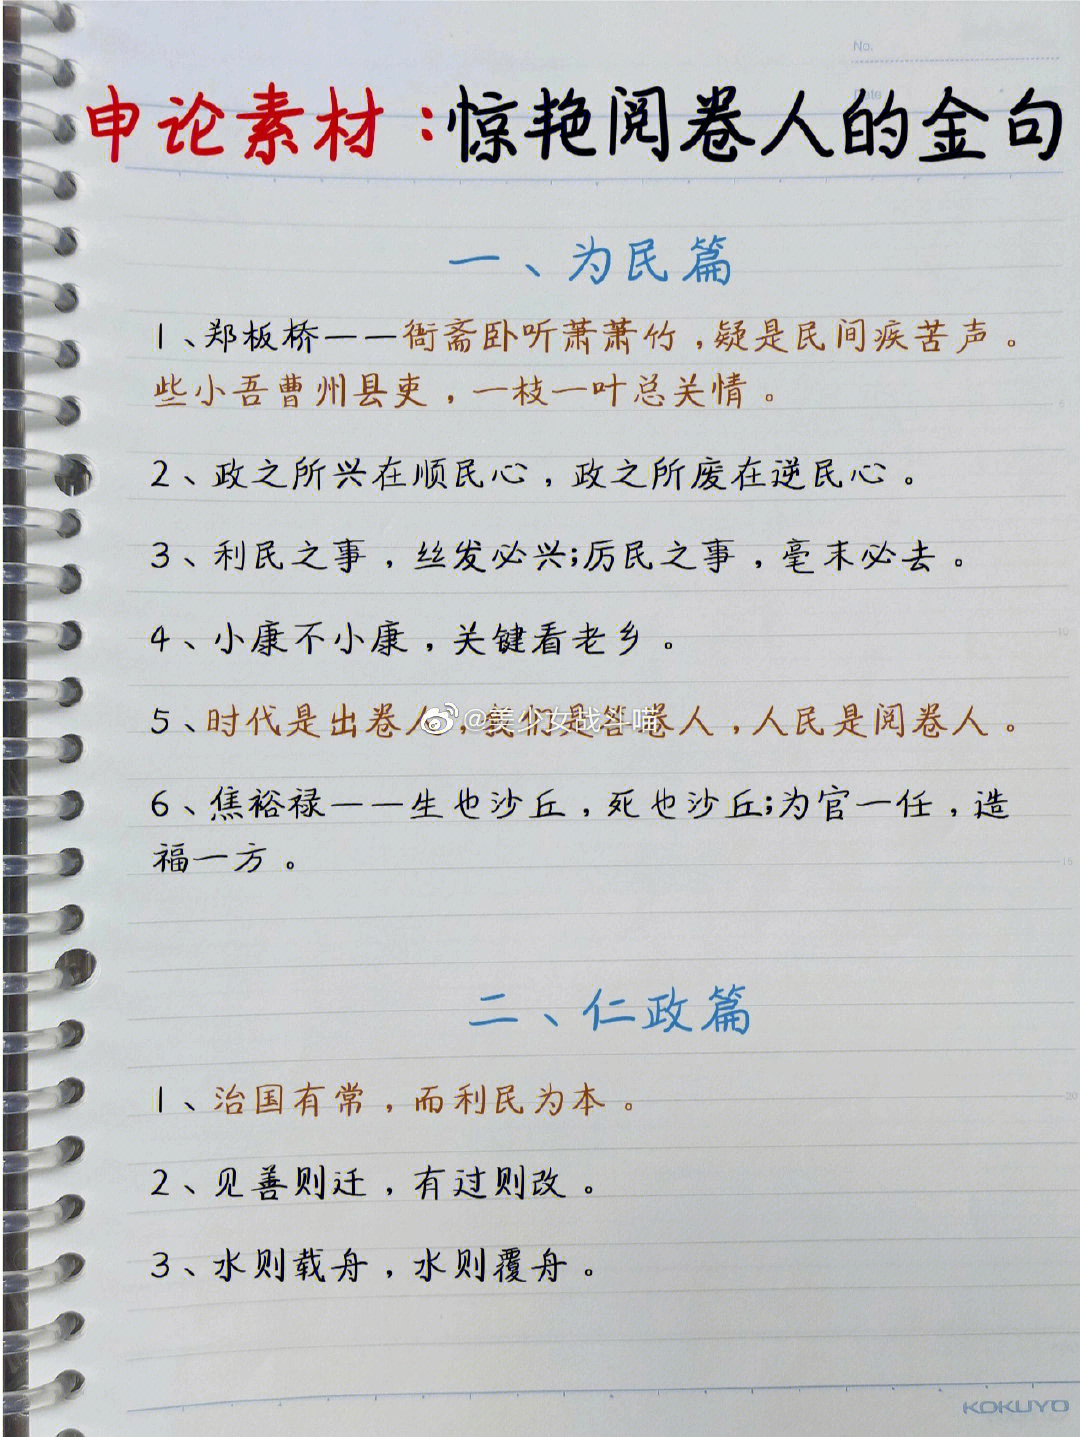 No.
Date
申论素材：惊艳阅卷人的金句
一、为民篇
1、郑板桥——衙斋卧听萧萧竹，疑是民间疾苦声。
些小吾曹州县吏，一枝一叶总关情。
2、政之所兴在顺民心，政之所废在逆民心。
3、利民之事，丝发必兴;厉民之事，毫末必去。
4、小康不小康，关键看老乡。
5、时代是出卷人，我们是答卷人，人民是阅卷人。
@美少女战斗喵
6、焦裕禄——生也沙丘，死也沙丘;为官一任，造
福一方。
二、仁政篇
1、治国有常，而利民为本。
2、见善则迁，有过则改。
3、水则载舟，水则覆舟。
KOKUYO